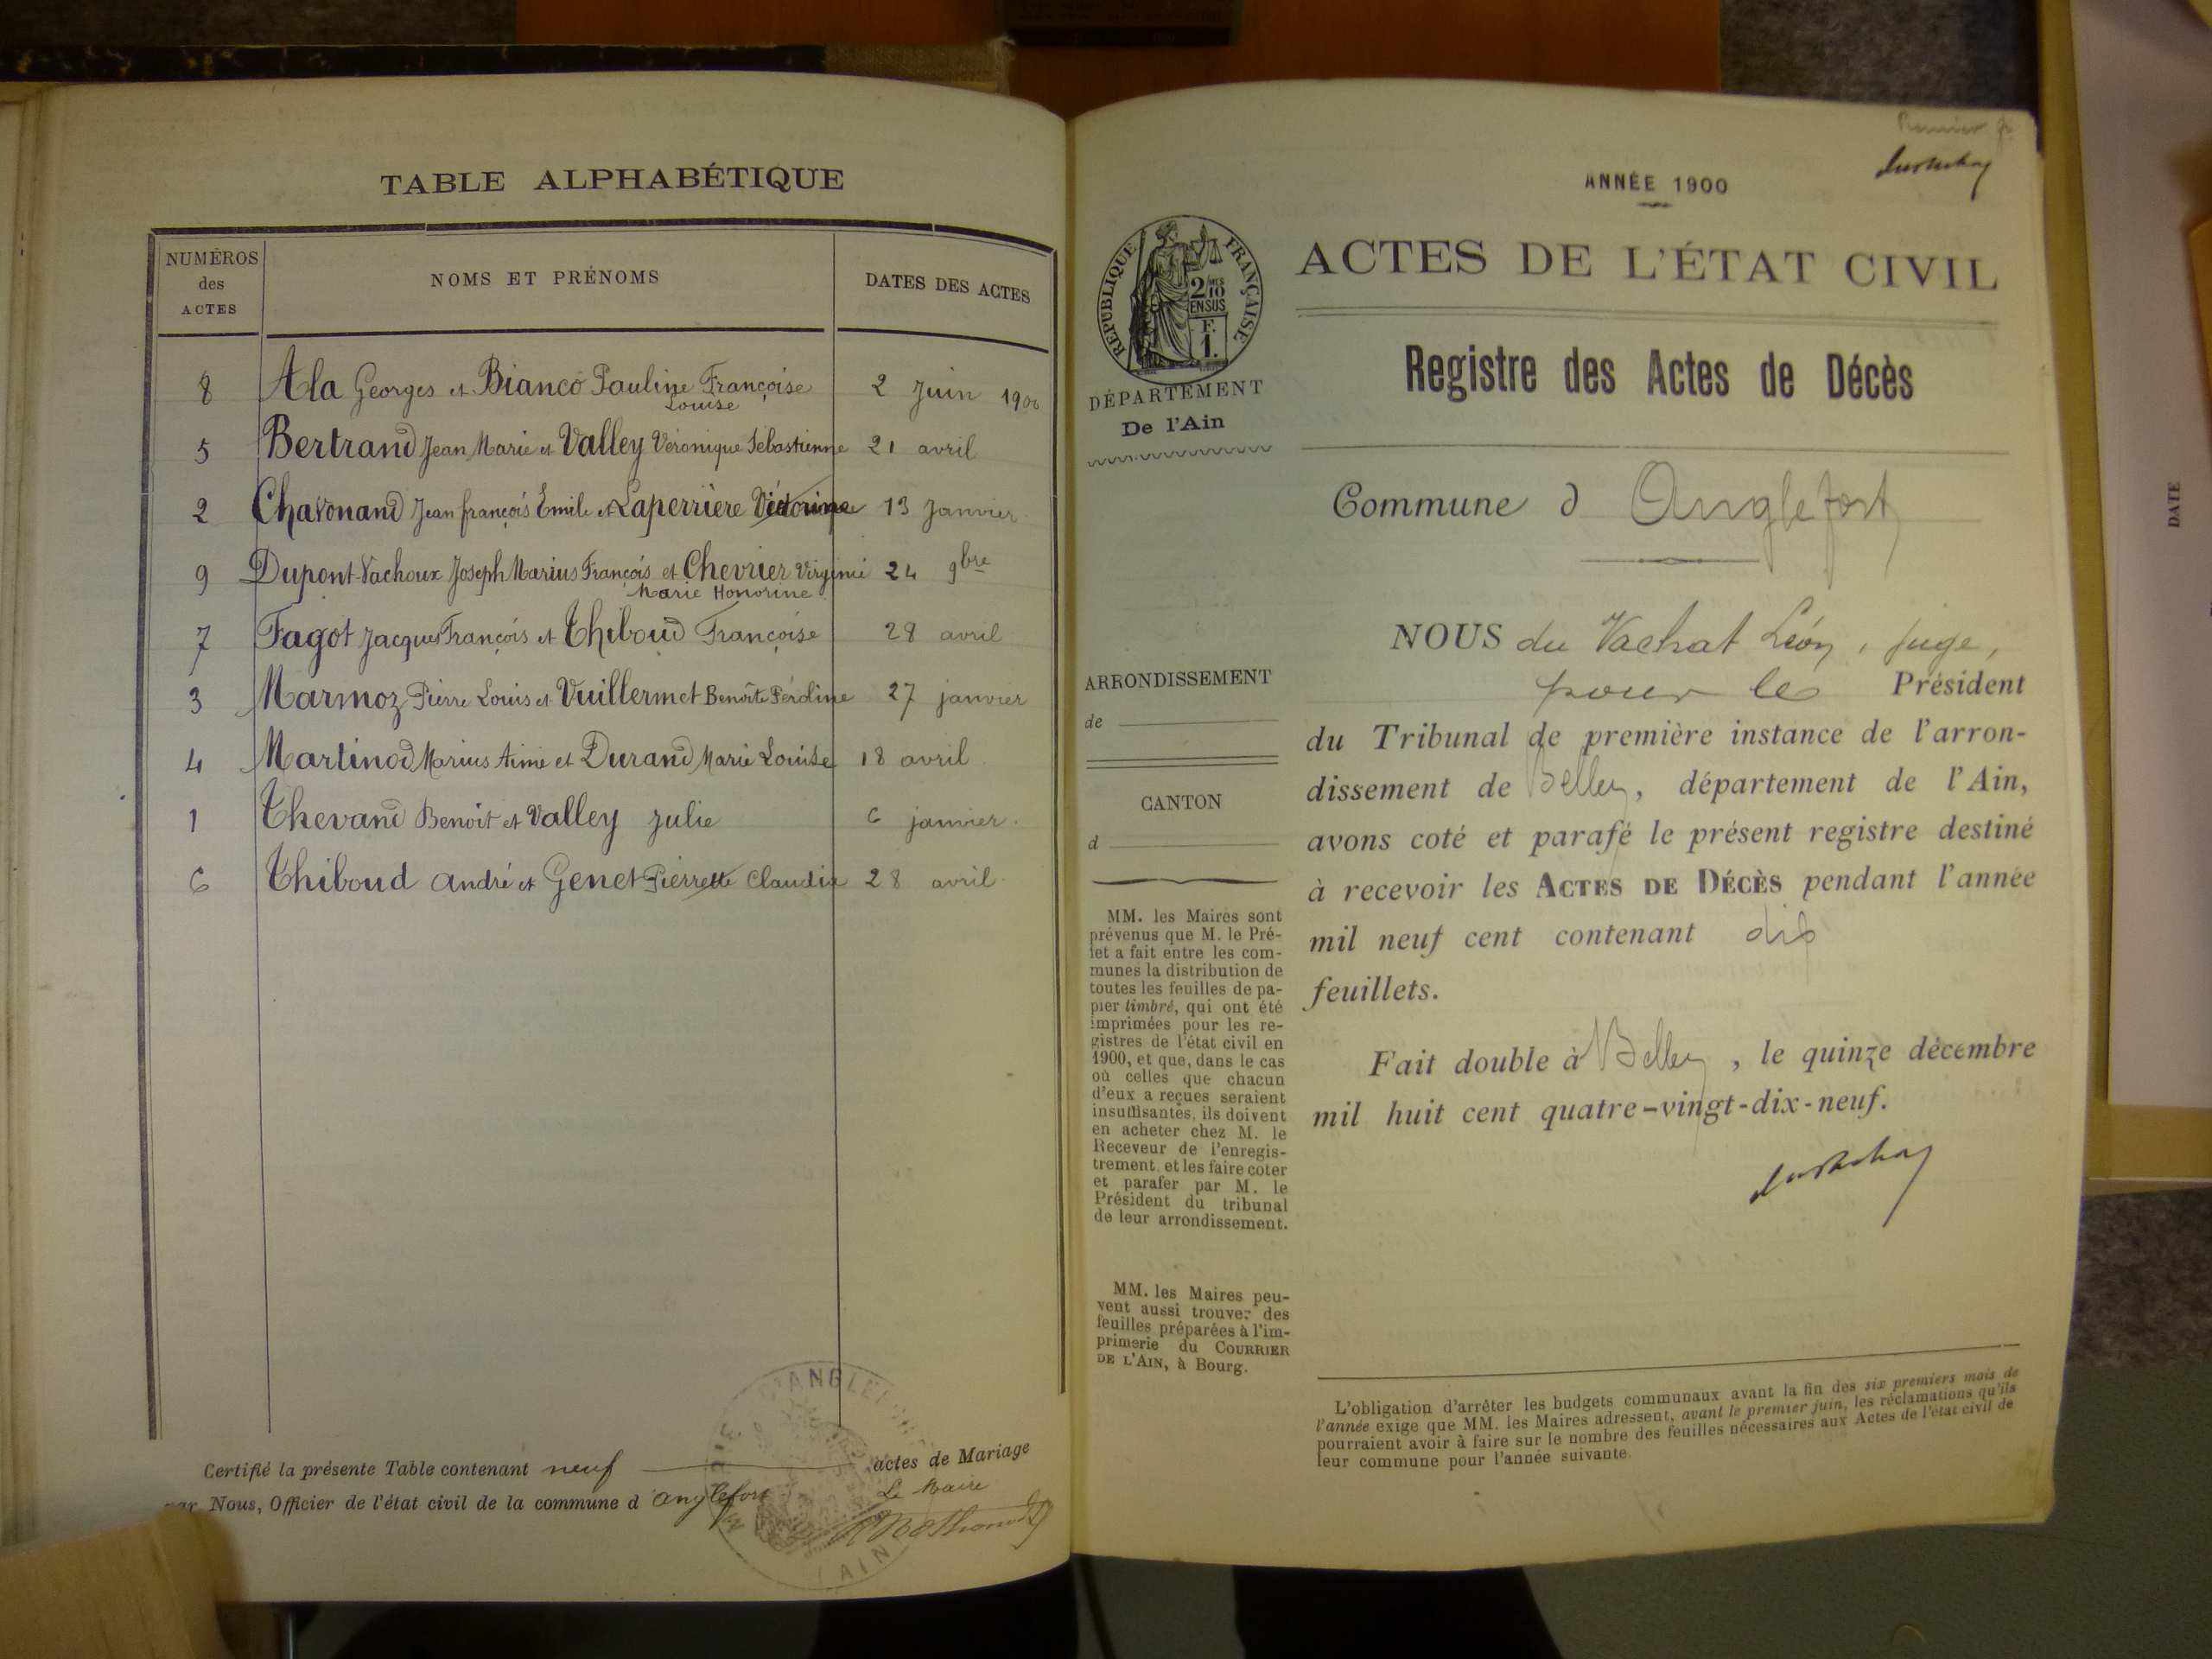 TABLE ALPHABÉTIQUE
NUMÉROS
des
ACTES
NOMS ET PRÉNOMS
DATES DES ACTES
8 Ala Georges et Bianco Pauline Françoise 2 Juin 1900
Louise
5 Bertrand Jean Marie et Valley Véronique Sébastienne 21 avril
2 Chavonand Jean françois Emile et Laperrière Victorine 13 Janvier
9 Dupont-Vachoux Joseph Marius François et Chevrier Virginie 24 9bre
Marie Honorine
7 Fagot Jacques François et Thiboud Françoise 28 avril
3 Marmoz Pierre Louis et Vuillermet Benoîte Péroline 27 janvier
4 Martinod Marius Aimé et Durand Marie Louise 18 avril
1 Thevand Benoit et Valley Julie 6 janvier
6 Thiboud André et Genet Pierrette Claudia 28 avril
Certifié la présente Table contenant neuf actes de Mariage
par Nous, Officier de l'état civil de la commune d'Anglefort
Le Maire
ANGLEFORT
AIN
Premier
ANNÉE 1900
RÉPUBLIQUE FRANÇAISE
2/10 MES
EN SUS
F.
1.
DÉPARTEMENT
De l'Ain
ACTES DE L'ÉTAT CIVIL
Registre des Actes de Décès
Commune d Anglefort
ARRONDISSEMENT
de
CANTON
d
MM. les Maires sont
prévenus que M. le Pré-
fet a fait entre les com-
munes la distribution de
toutes les feuilles de pa-
pier timbré, qui ont été
imprimées pour les re-
gistres de l'état civil en
1900, et que, dans le cas
où celles que chacun
d'eux a reçues seraient
insuffisantes, ils doivent
en acheter chez M. le
Receveur de l'enregis-
trement, et les faire coter
et parafer par M. le
Président du tribunal
de leur arrondissement.
MM. les Maires peu-
vent aussi trouver des
feuilles préparées à l'im-
primerie du COURRIER
DE L'AIN, à Bourg.
NOUS du Vachat Léon, juge,
pour le Président
du Tribunal de première instance de l'arron-
dissement de Belley, département de l'Ain,
avons coté et parafé le présent registre destiné
à recevoir les ACTES DE DÉCÈS pendant l'année
mil neuf cent contenant dix
feuillets.
Fait double à Belley, le quinze décembre
mil huit cent quatre-vingt-dix-neuf.
L'obligation d'arrêter les budgets communaux avant la fin des six premiers mois de
l'année exige que MM. les Maires adressent, avant le premier juin, les réclamations qu'ils
pourraient avoir à faire sur le nombre des feuilles nécessaires aux Actes de l'état civil de
leur commune pour l'année suivante.
DATE